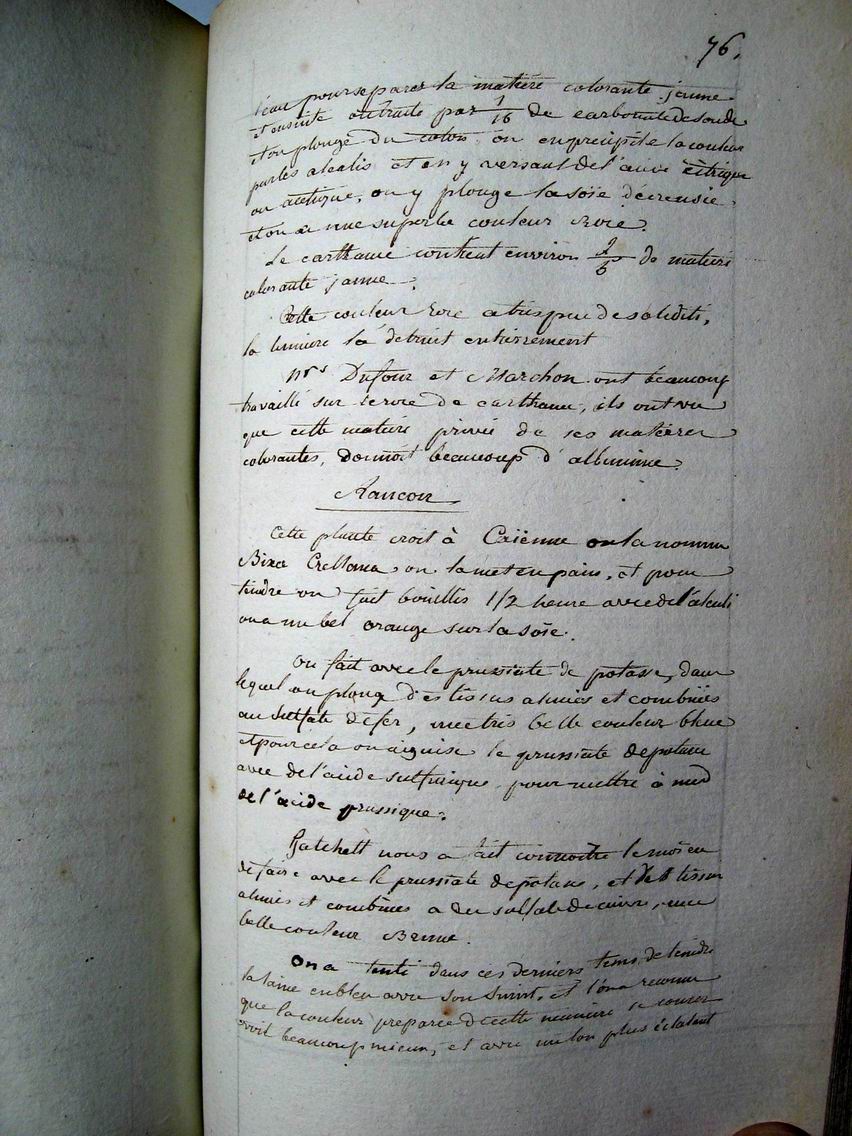 76.
l'eau pour separer la matiere colorante jaune
et ensuite on traite par 1/16 de carbonate de soude
et on plonge du coton on en precipite la couleur
par les alcalis et en y versant de l'acide citrique
ou acetique, on y plonge la soie décreusée
et on a une superbe couleur rose.
Le carthame contient environ de matiere
colorante jaune.
Cette couleur rose a très peu de solidité,
la lumiere la détruit entierrement
Mrs Dufour et Marchon ont beaucoup
travaillé sur le rose de carthame, ils ont vu
que cette matiere privée de ses matieres
colorantes, donnoit beaucoup d'albumine.
Rancou
Cette plante croit à Caïenne on la nomme
Bixa Orellana on la met en pains, et pour
teindre on fait bouillir 1/2 heure avec de l'alcali
on a un bel orange sur la soie.
On fait avec le prussiate de potasse, dans
lequel on plonge des tissus alunés et combinés
au sulfate de fer, une tris belle couleur bleue
et pour cela on aiguise le prussiate de potasse
avec de l'acide sulfurique pour mettre à nud
de l'acide prussique.
hatchett nous a fait connoitre le moïen
de faire avec le prussiate de potasse, et des tissus
alunés et combinés a du sulfate de cuivre, une
belle couleur Brune.
On a tenté dans ces derniers tems de teindre
la laine en bleu avec son suint, et l'on a reconnu
que la couleur préparée de cette maniere se conser
voit beaucoup mieux, et avec un ton plus éclatant